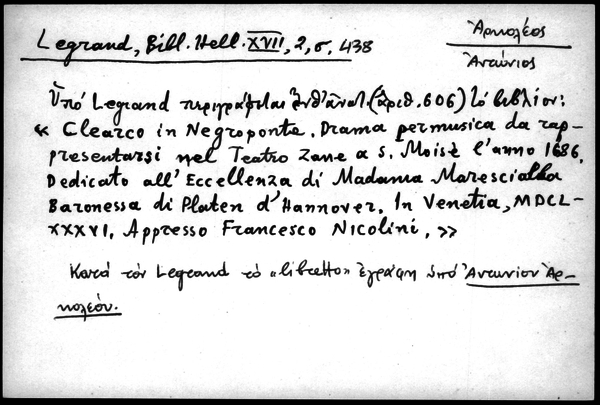 Legrand, Bill. Hell. XVII, 2, σ. 438
Ἀρκολέος
Ἀντώνιος
Ὑπό Legrand περιγράφεται (ἀριθ. 606) τό βιβλίον:
« Clearco in Negroponte. Drama permusica da rap-
presentarsi nel Teatro Zane a S. Moisè l'anno 1686.
Dedicato all'Eccellenza di Madama Marescialla
Baronessa di Platen d'Hannover. In Venetia, MDCL-
XXXVI, Appresso Francesco Nicolini, »
Κατά τόν Legrand τό «libretto» ἐγράφη ὑπό Ἀντωνίου Ἀρ-
κολέου.